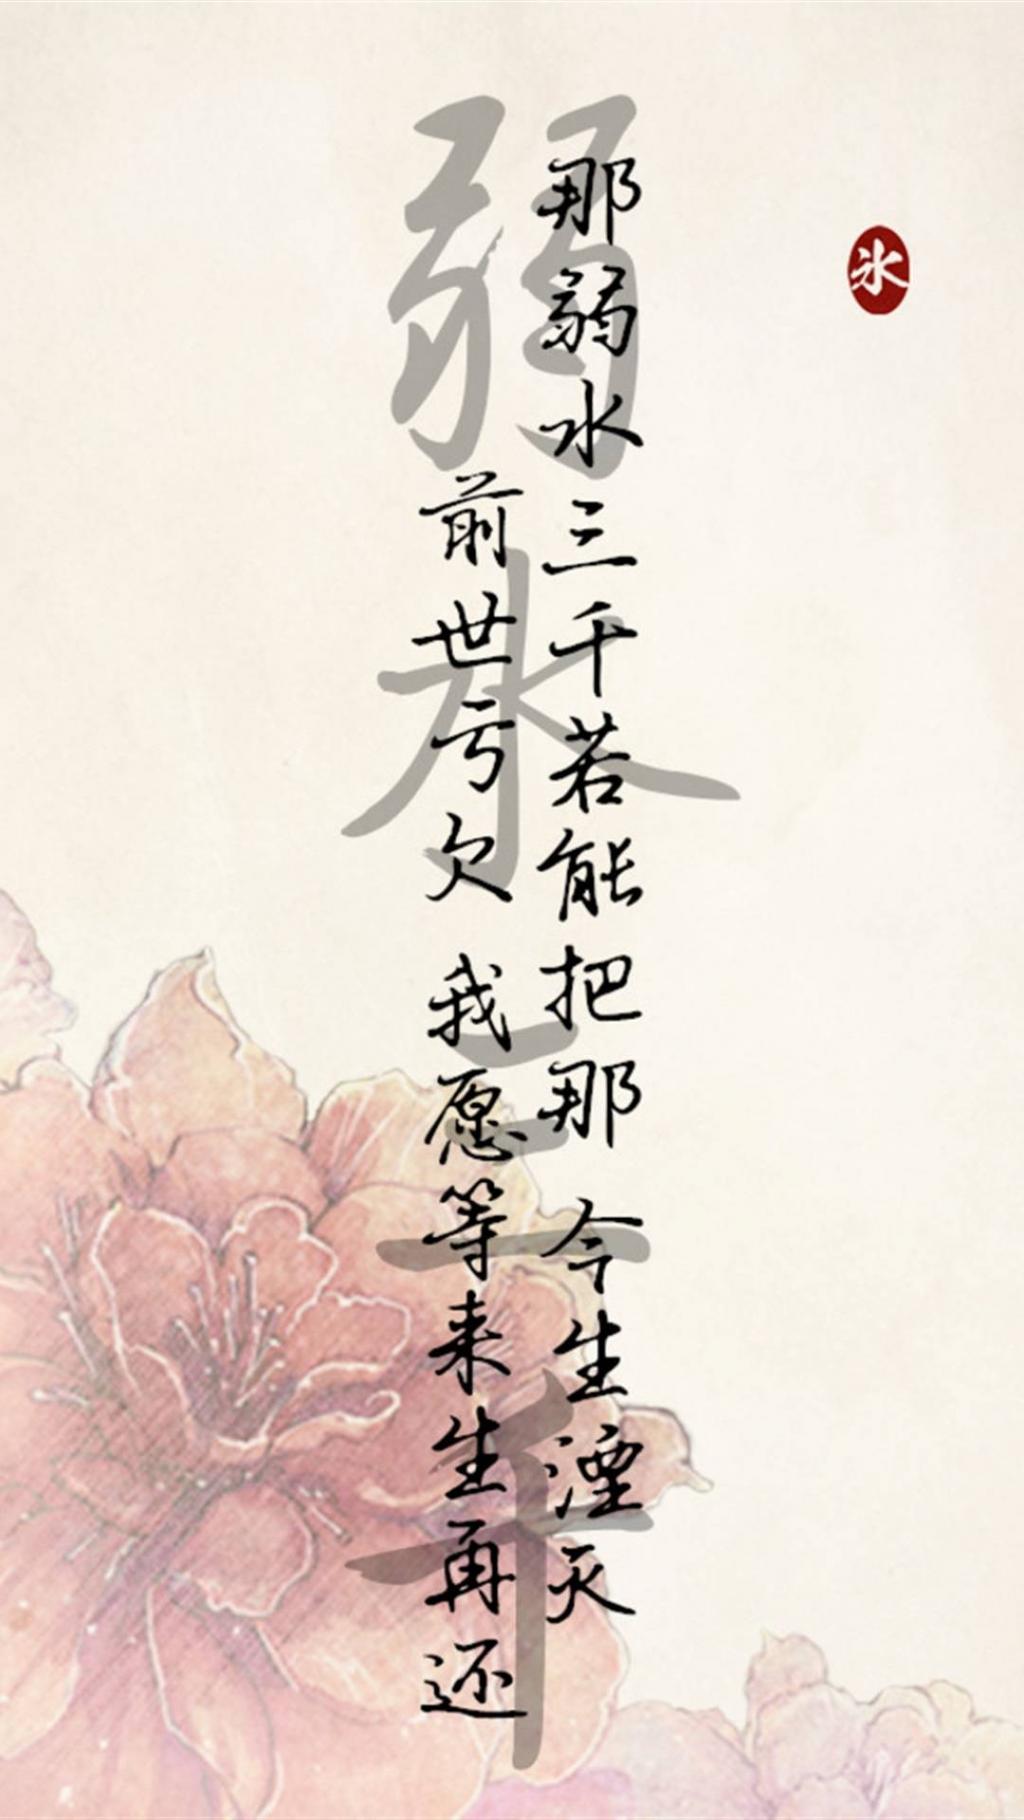 那弱水三千若能把那 今生湮灭
前世亏欠 我愿等来生再还
弱水三千
氷